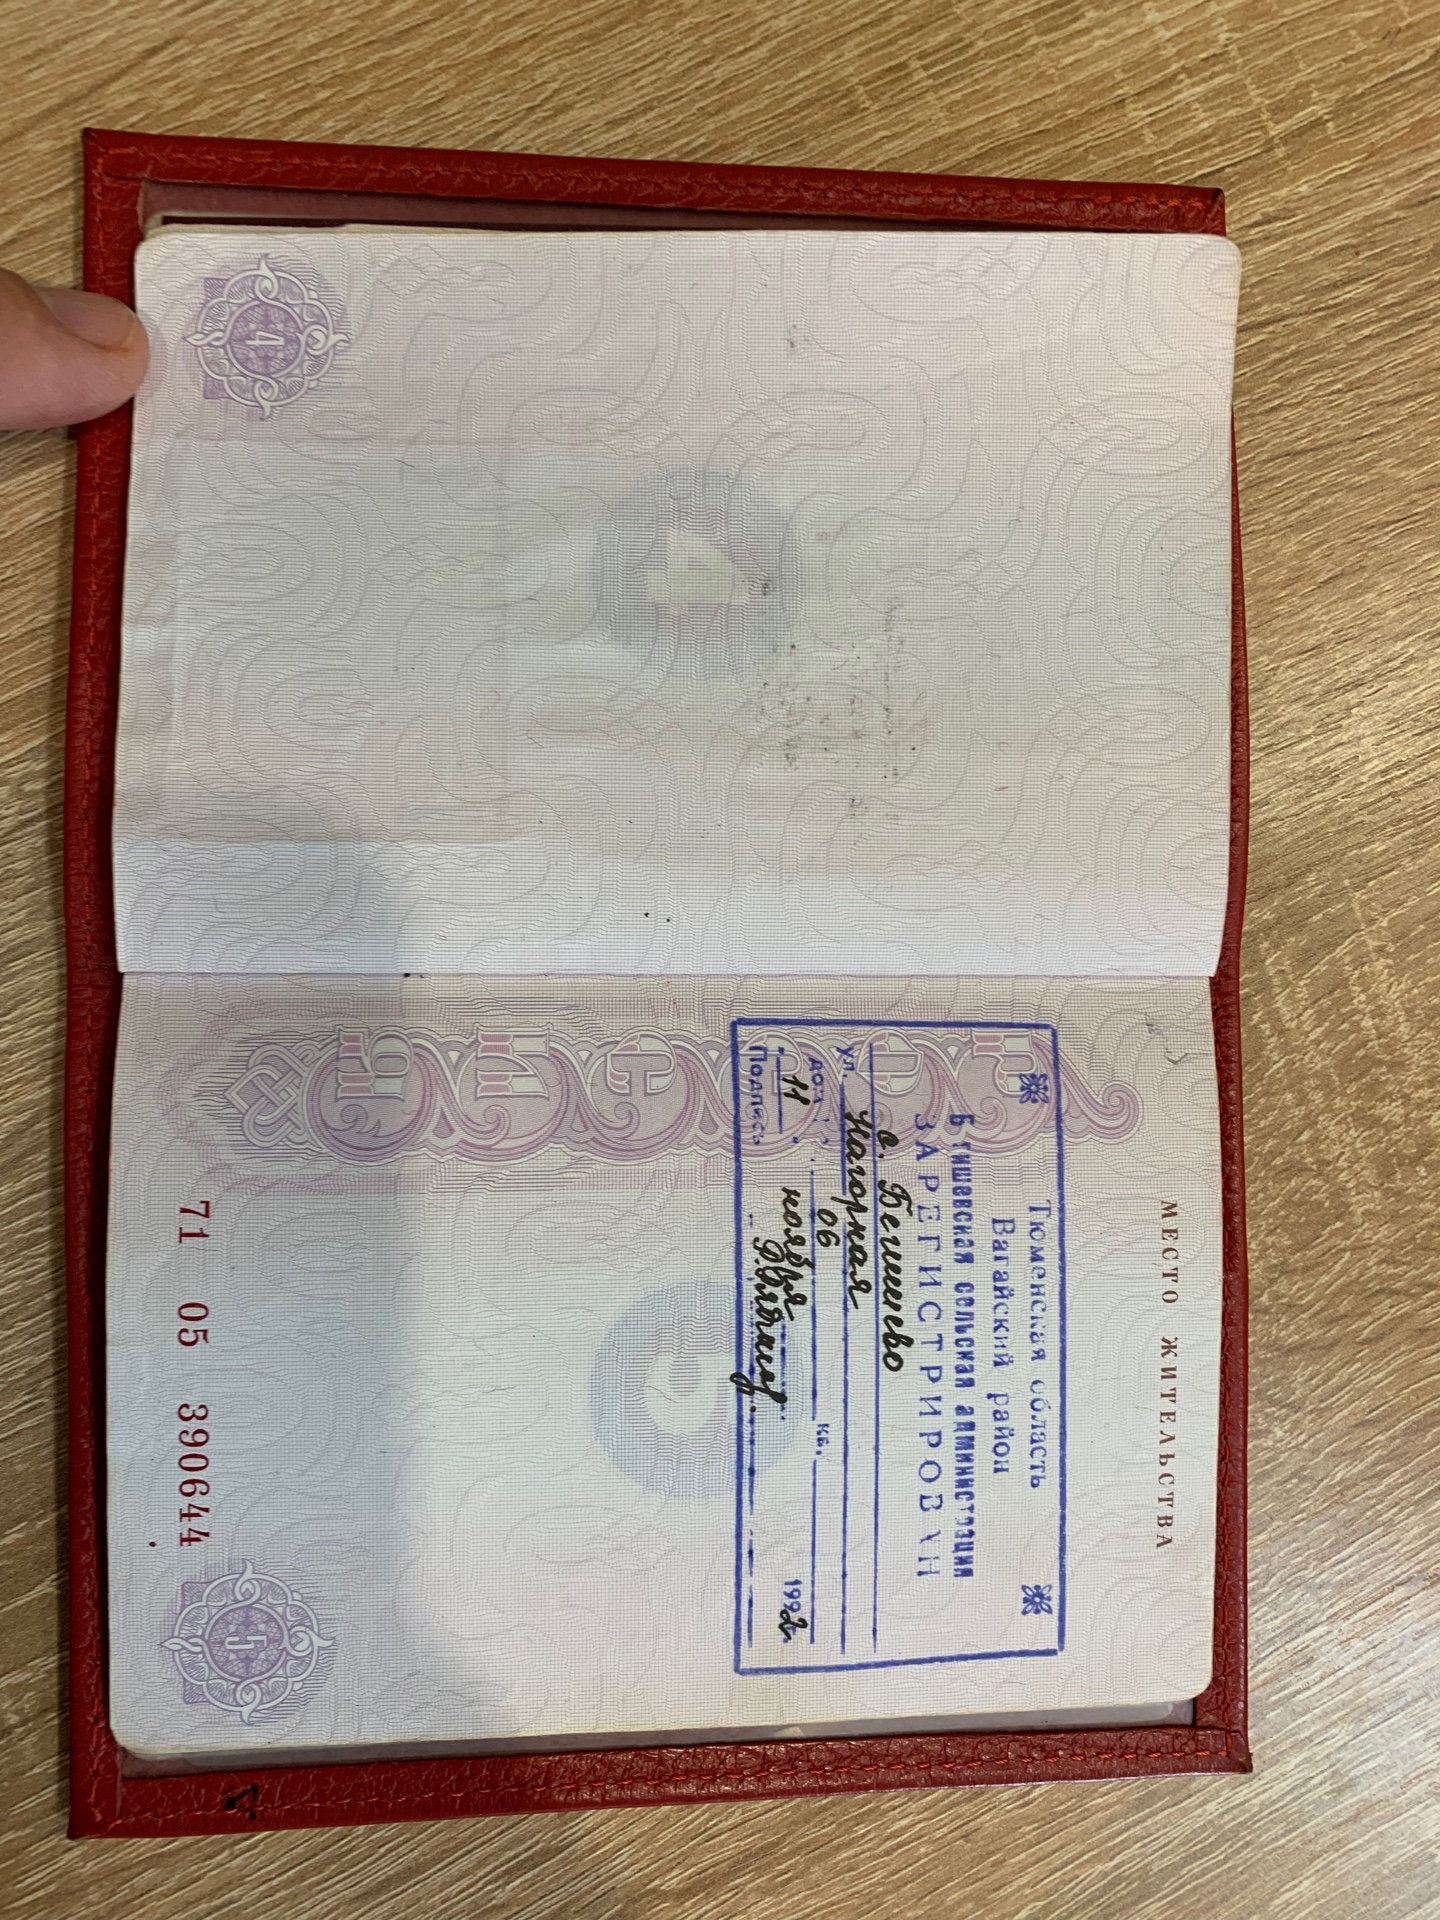 4
МЕСТО ЖИТЕЛЬСТВА
Тюменская область
Вагайский район
Б гишевская сельская администрация
ЗАРЕГИСТРИРОВАН
с. Бегишево
ул. Нагорная
дом 06 кв.
" 11 " ноября 1992г.
Подпись
РОССИЯ
71 05 390644
5